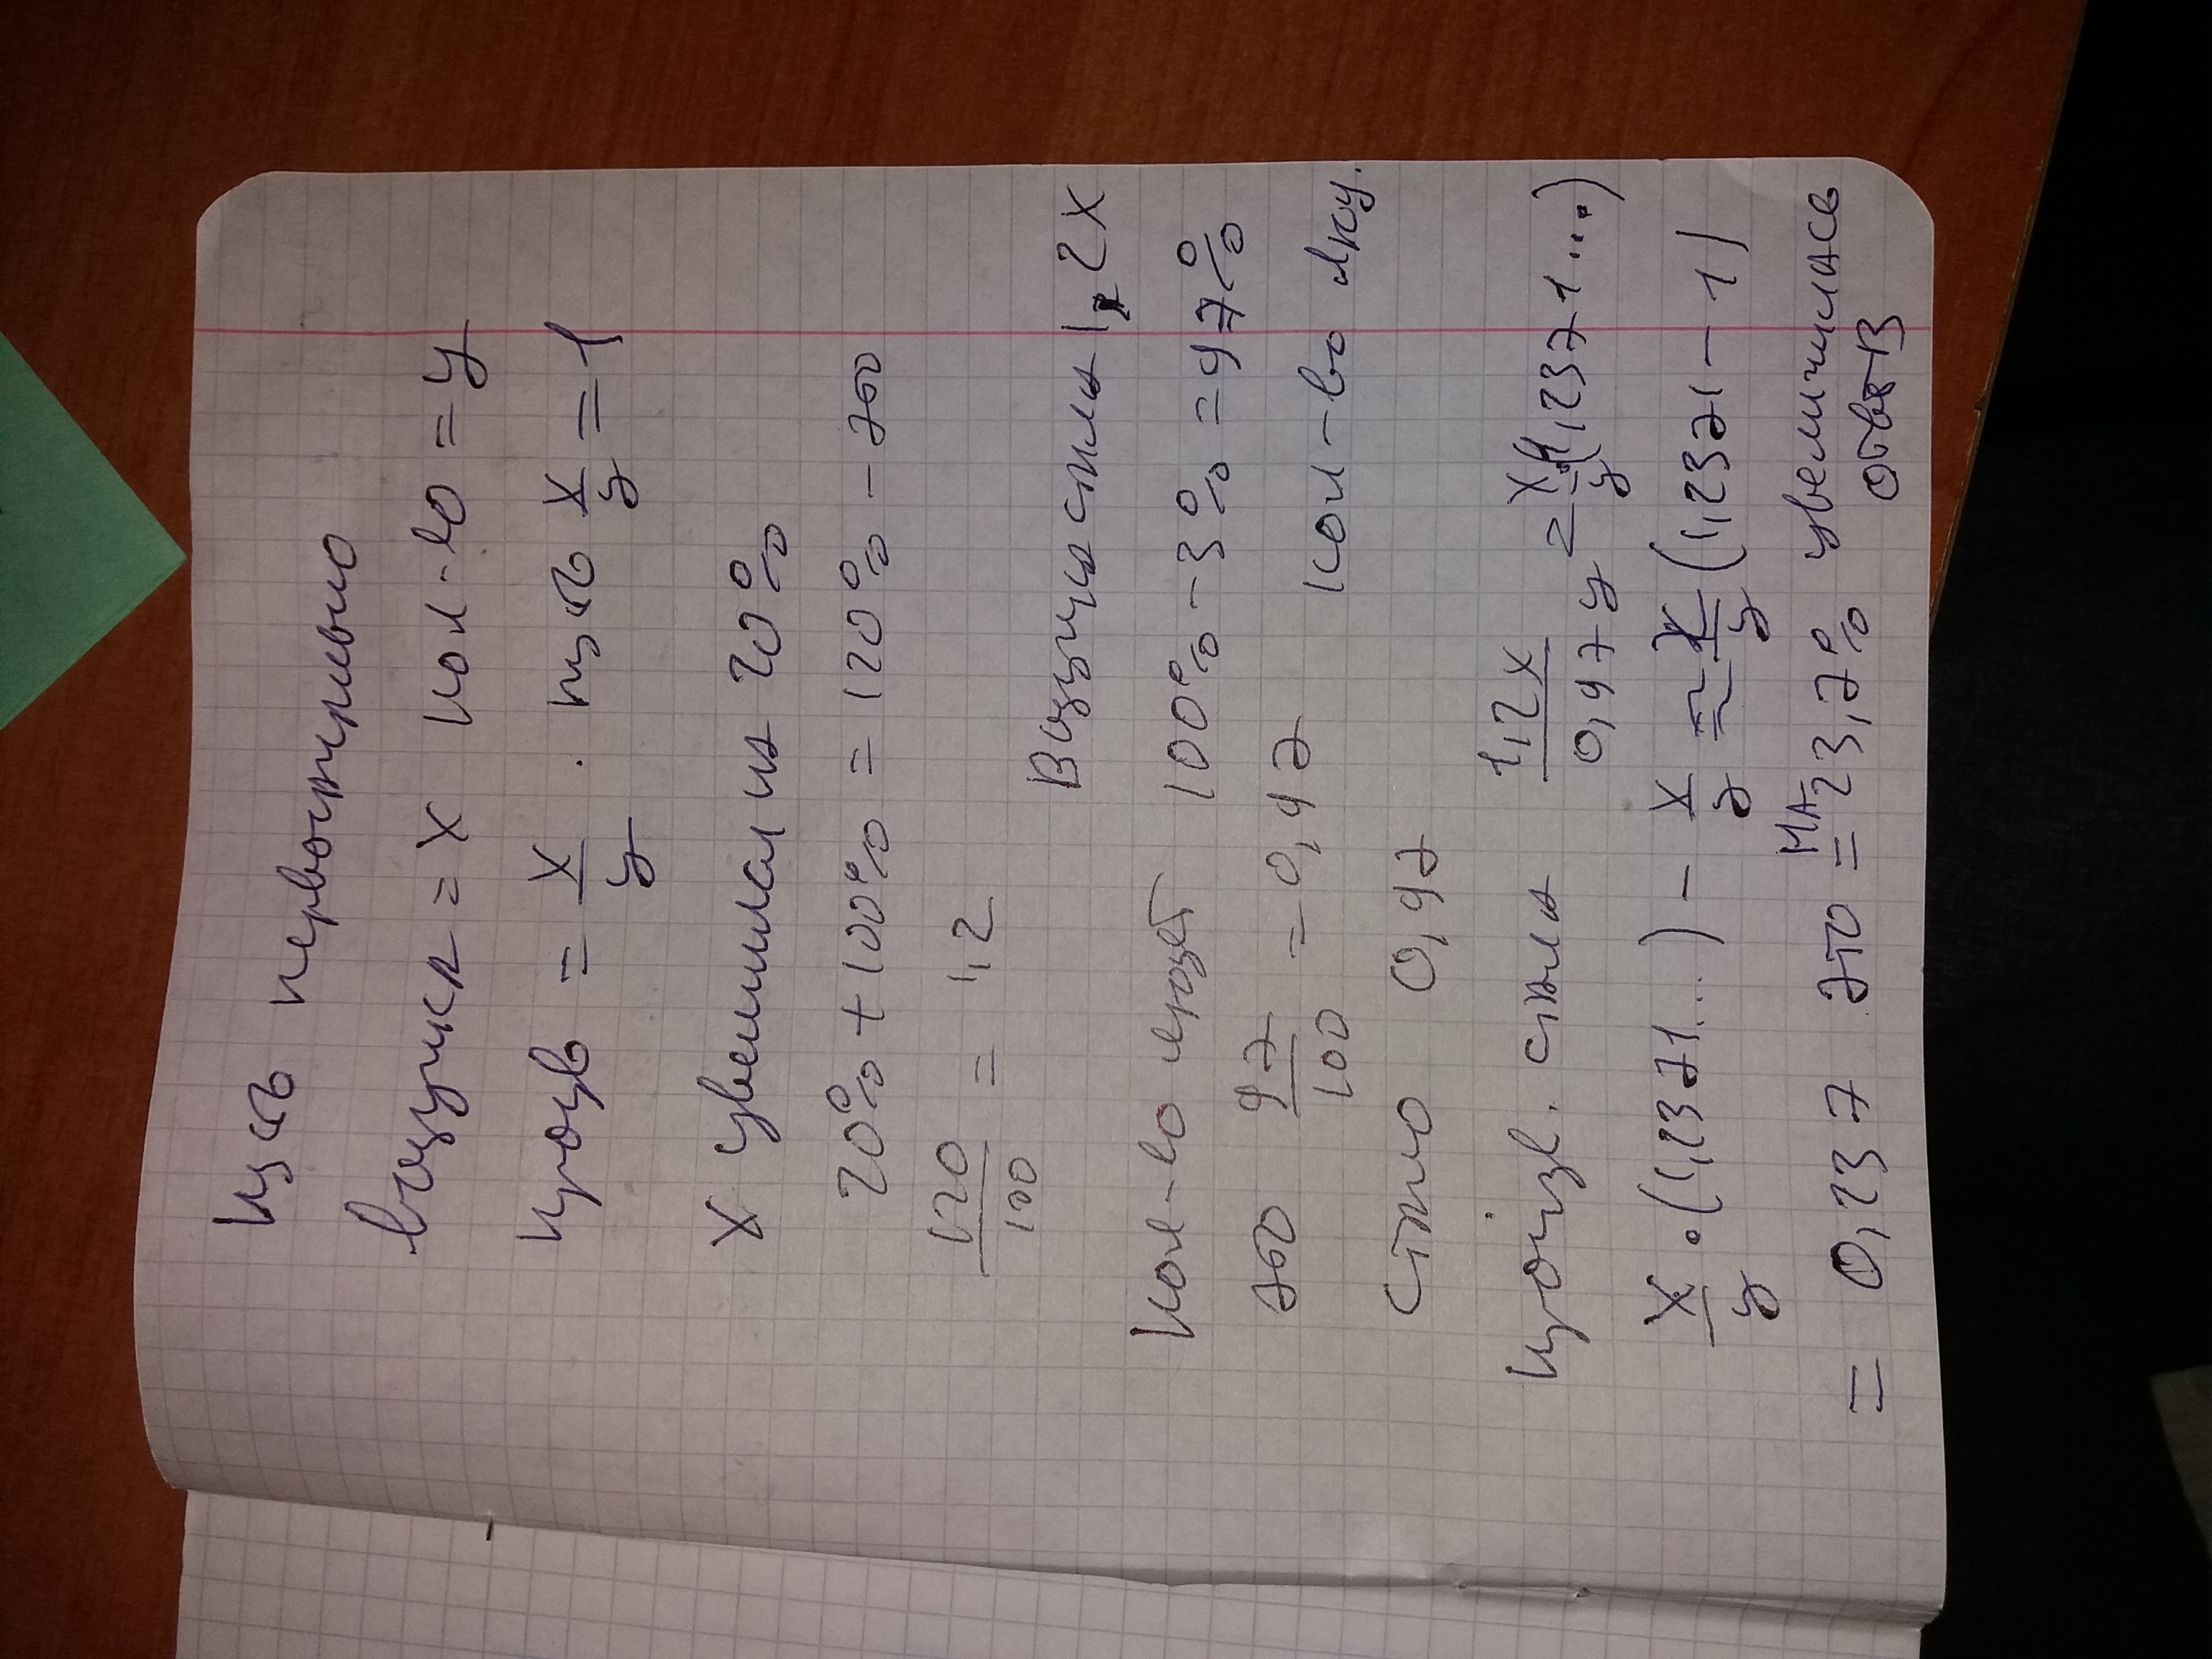 пусть первоначально
выпуск = x кол-во = y
произв = x/y . пусть x/y = 1
x увеличили на 20%
20% + 100% = 120% - это
120/100 = 1,2
Выпуск стал 1,2x
кол-во людей 100% - 3% = 97%
это 97/100 = 0,97 кол-во люд.
стало 0,97
произв. стала 1,2x/0,97y = x/y(1,2371....)
x/y · (1,2371...) - x/y = x/y(1,2371 - 1)
= 0,237 это = на 23,7% увеличилась
ответ B